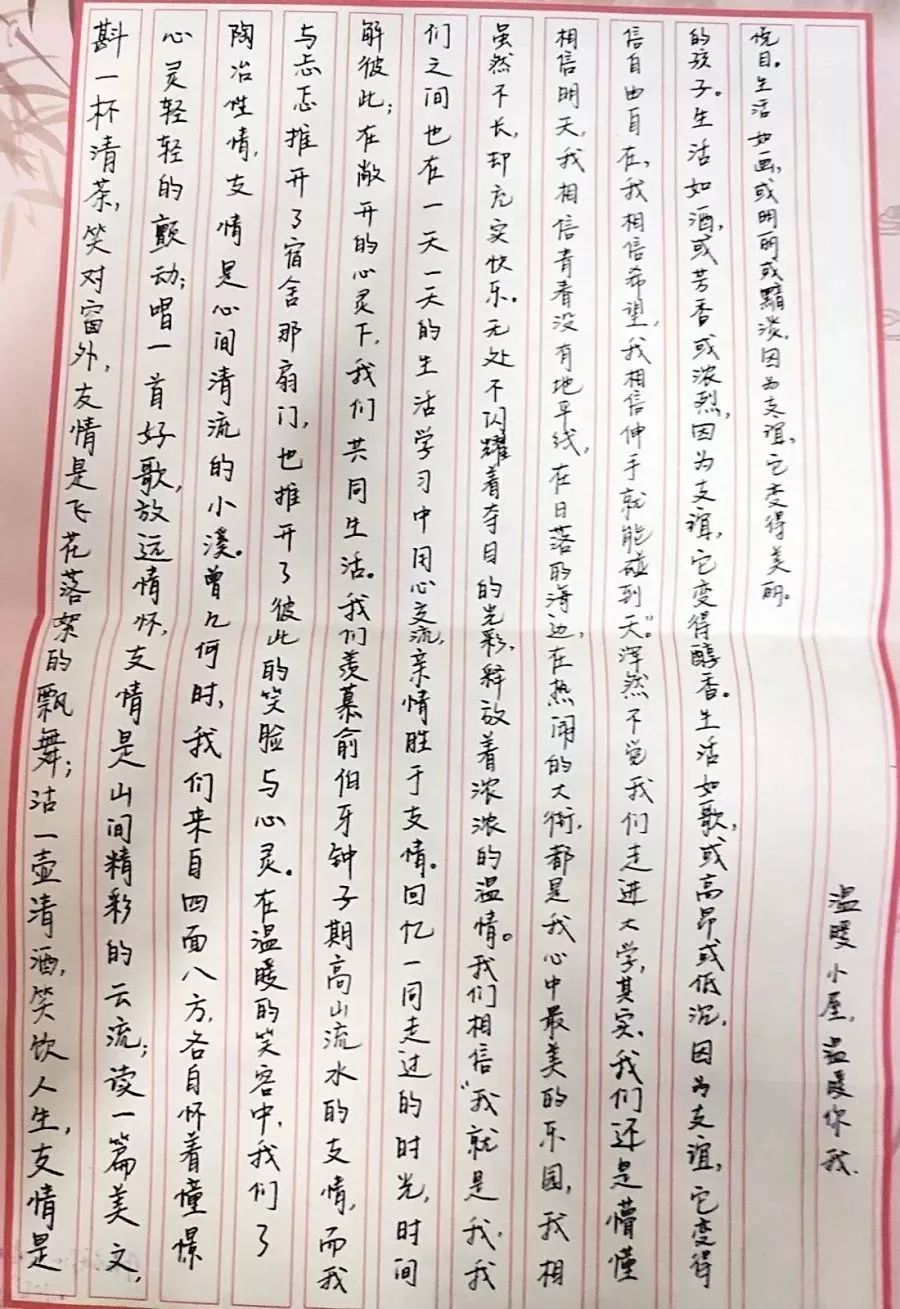 斟一杯清茶,笑对窗外,友情是飞花落絮的飘舞;沽一壶清酒,笑饮人生,友情是
心灵轻轻的颤动;唱一首好歌,放远情怀,友情是山间精彩的云流;读一篇美文,
陶冶性情,友情是心间清流的小溪。曾几何时,我们来自四面八方,各自怀着憧憬
与忐忑推开了宿舍那扇门,也推开了彼此的笑脸与心灵。在温暖的笑容中,我们了
解彼此;在敞开的心灵下,我们共同生活。我们羡慕俞伯牙钟子期高山流水的友情,而我
们之间也在一天一天的生活学习中用心交流,亲情胜于友情。回忆一同走过的时光,时间
虽然不长,却充实快乐。无处不闪耀着夺目的光彩,释放着浓浓的温情。我们相信“我就是我,我
相信明天,我相信青春没有地平线,在日落的海边,在热闹的大街,都是我心中最美的乐园,我相
信自由自在,我相信希望,我相信伸手就能碰到天”。浑然不觉我们走进大学,其实,我们还是懵懂
的孩子。生活如酒,或芳香或浓烈,因为友谊,它变得醇香。生活如歌,或高昂或低沉,因为友谊,它变得
悦目。生活如画,或明丽或黯淡,因为友谊,它变得美丽。
温暖小屋,温暖你我.